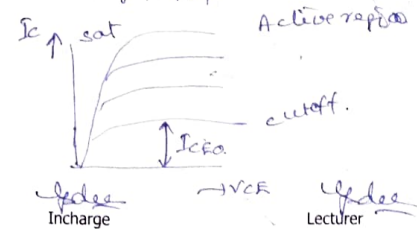 Ic sat Active region
cutoff.
ICEO.
→VCE
Incharge Lecturer